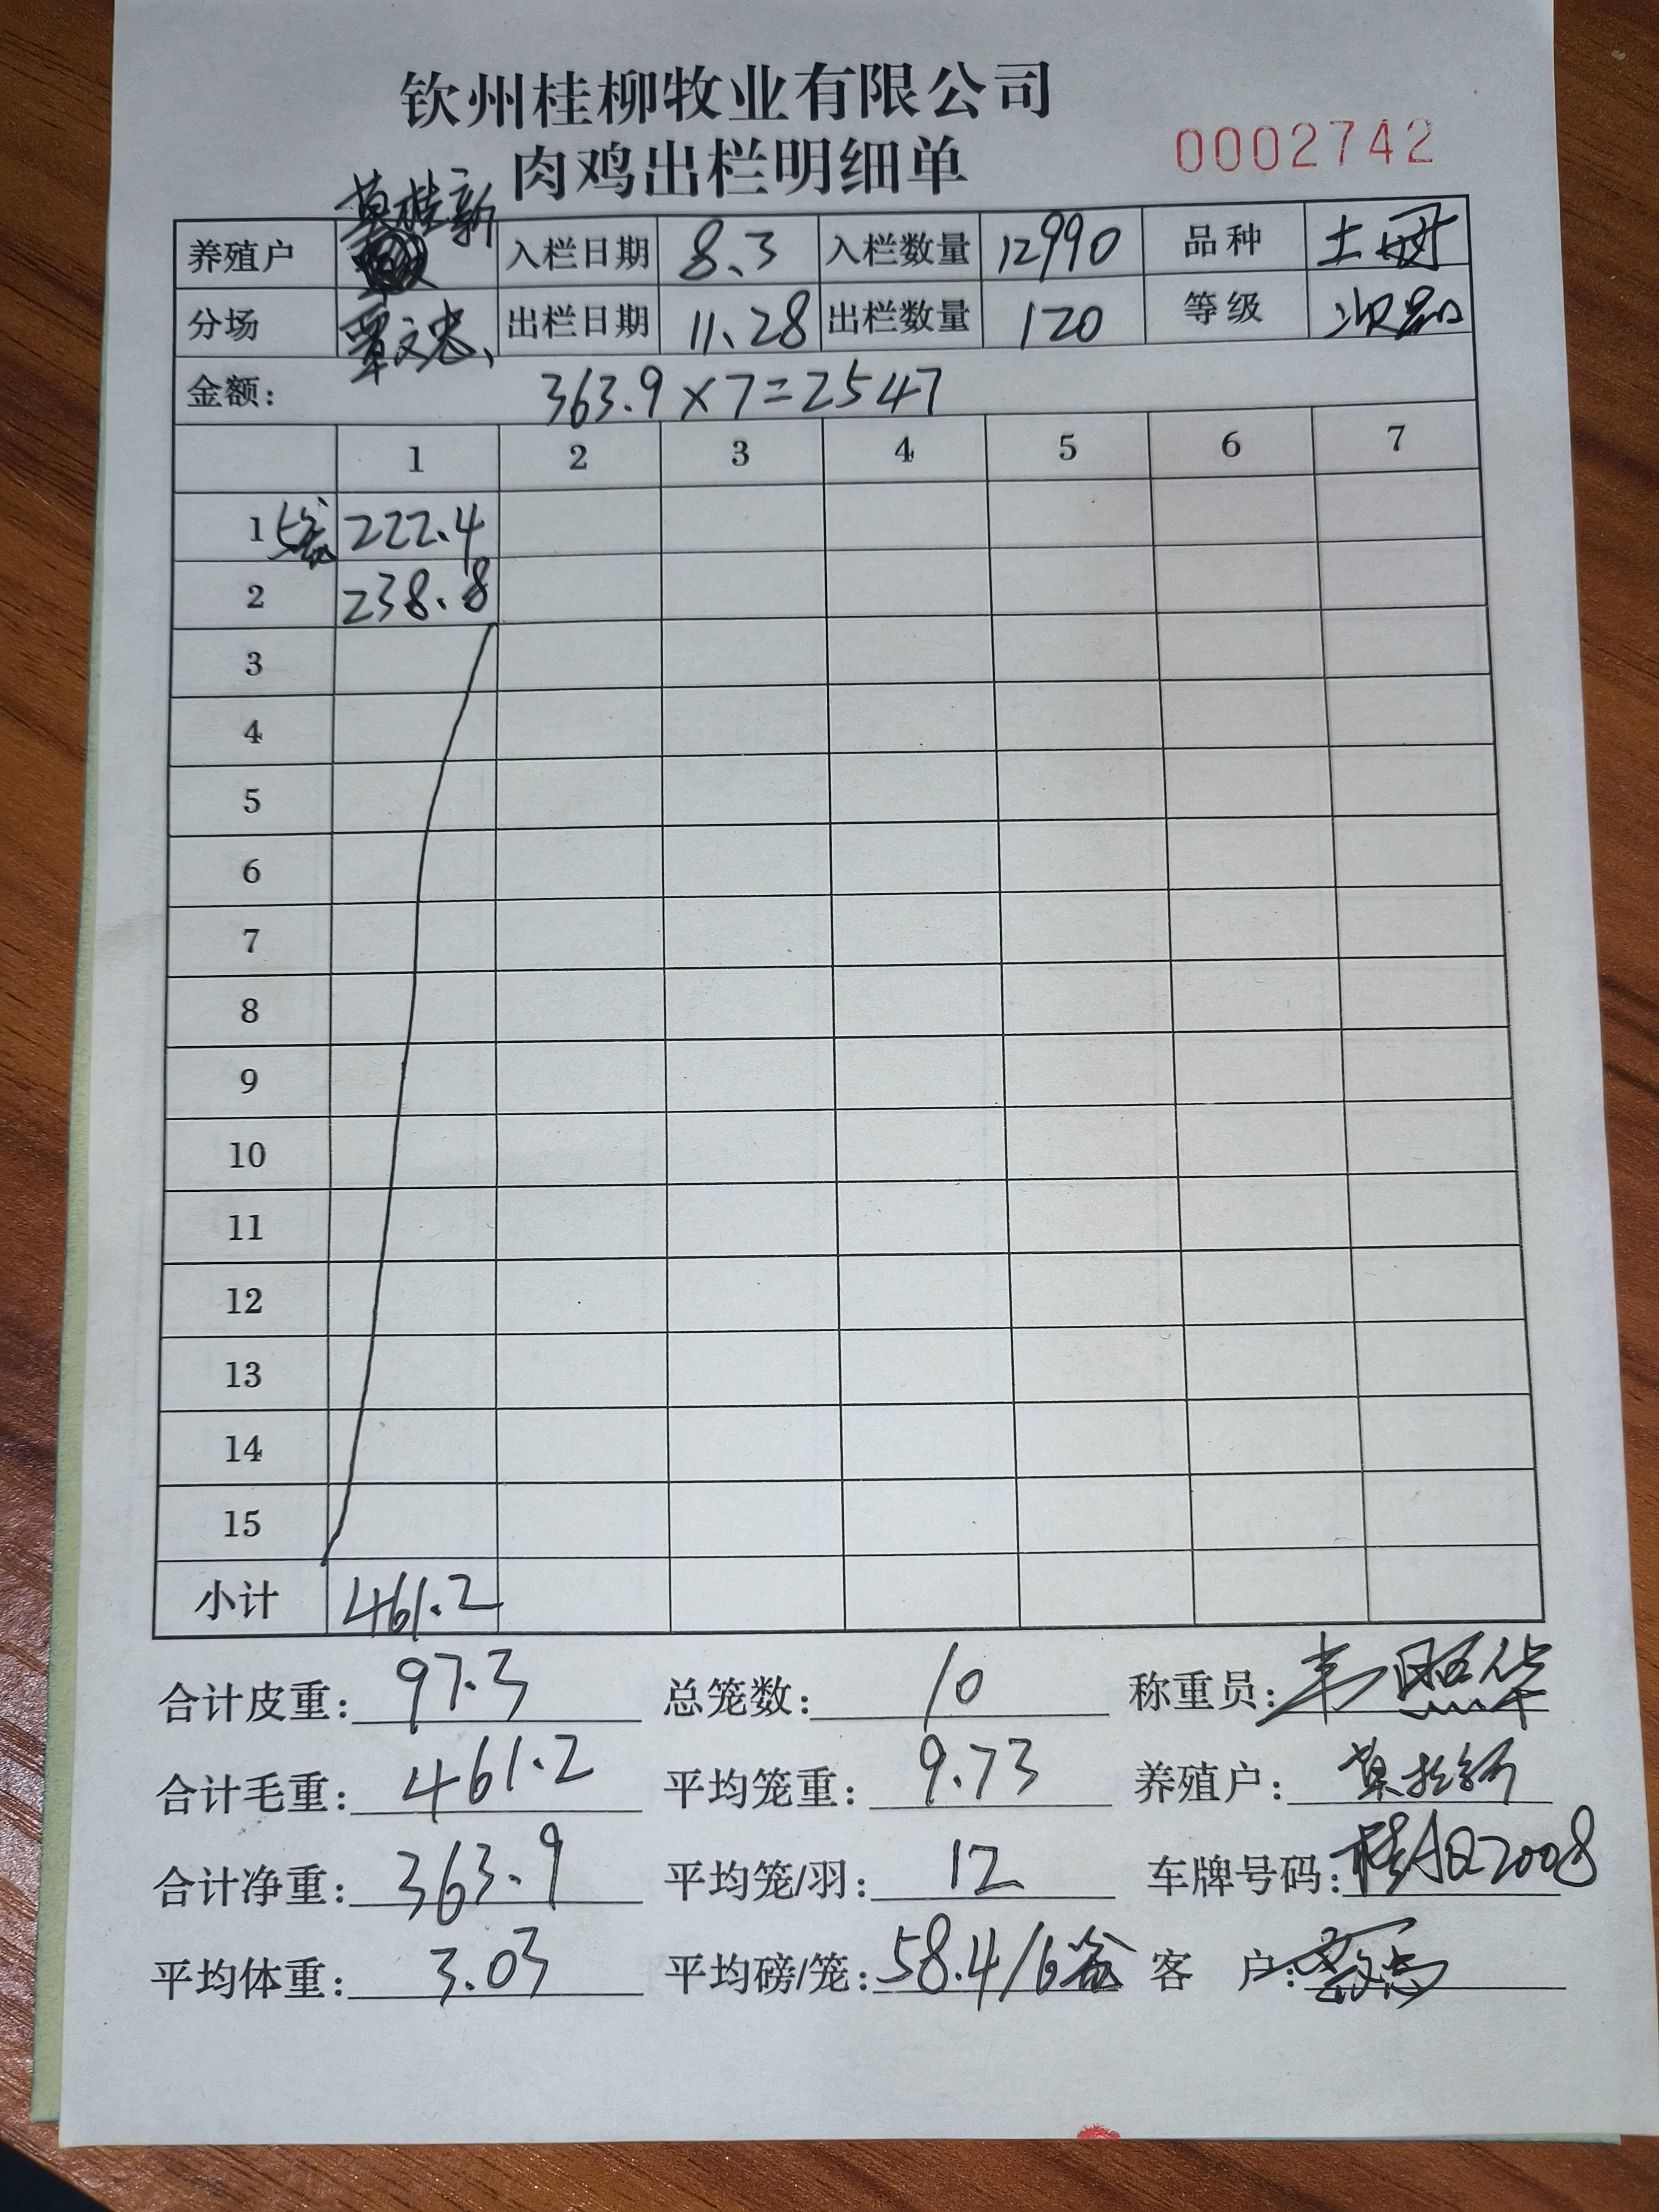 钦州桂柳牧业有限公司
肉鸡出栏明细单 0002742
养殖户 莫桂新 入栏日期 8.3 入栏数量 12990 品种 土
分场 覃文忠、 出栏日期 11.28 出栏数量 120 等级 次品
金额: 363.9×7=2547
1 2 3 4 5 6 7
1 5笼 222.4
2 238.8
3
4
5
6
7
8
9
10
11
12
13
14
15
小计 461.2
合计皮重: 97.3 总笼数: 10 称重员: 韦照华
合计毛重: 461.2 平均笼重: 9.73 养殖户: 莫桂新
合计净重: 363.9 平均笼/羽: 12 车牌号码:
平均体重: 3.03 平均磅/笼: 58.4/6笼 客 户: